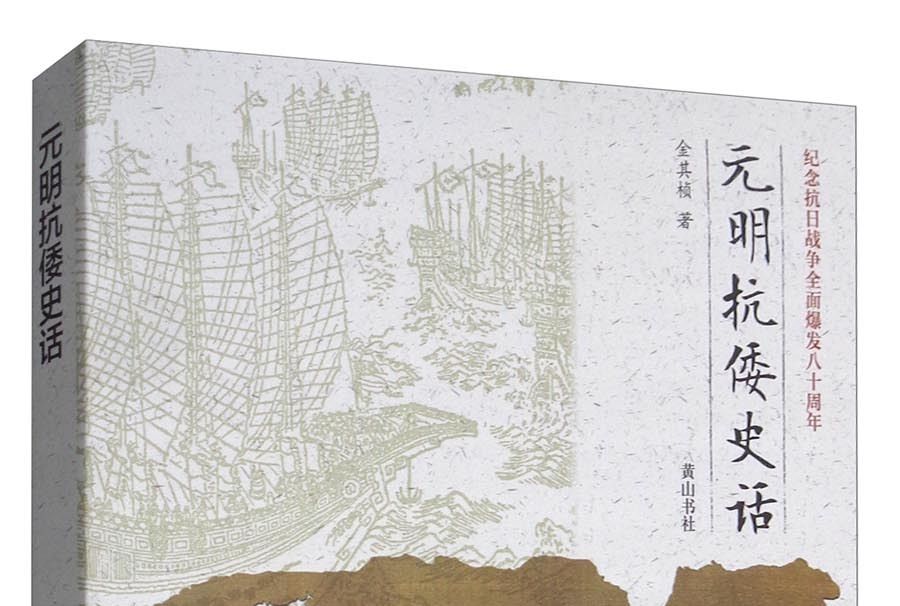 纪念抗日战争全面爆发八十周年
元明抗倭史话
金其桢 著
黄山书社
元明抗倭史话